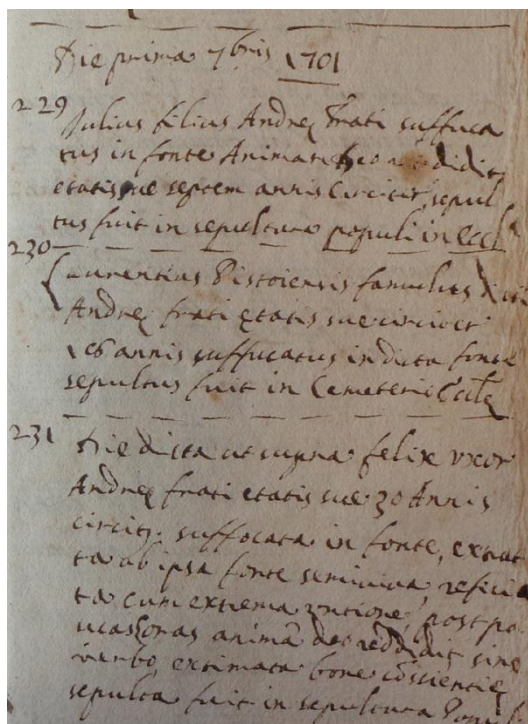 Die prima 7bris 1701
229 Julius filius Andreę Frati suffuca
tus in fonte Animam deo reddidit,
etatis sue septem annis circiter, sepul
tus fuit in sepultura populi in eccl
230
Laurentius Pistoiensis famulus
Andreę frati ętatis sue circiter
16 annis suffucatus in dicta fonte
sepultus fuit in Cemeterii
231 Die dicta ut supra felix uxor
Andreę frati etatis sue 30 Annis
circitr. suffocata in fonte, extrat
ta ab ipsa fonte semiviva, refici
ta cum extrema untione, post po
ucas horas animã deo reddidit sine
verbo, extimata bone cõssientię
sepulta fuit in sepultura